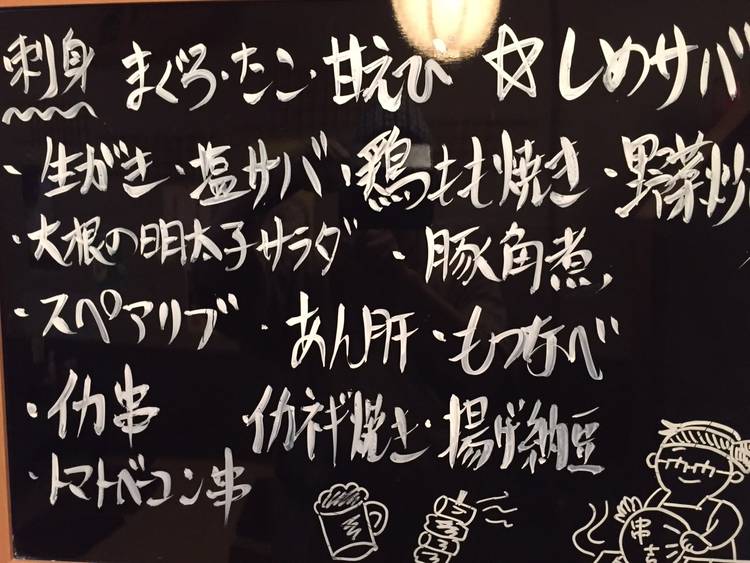 刺身 まぐろ・たこ・甘えび ☆しめサバ
・生がき・塩サバ・鶏もも焼き・野菜炒
・大根の明太子サラダ ・豚角煮
・スペアリブ ・あん肝・もつなべ
・イカ串 イカネギ焼き・揚げ納豆
・トマトベーコン串
串吉